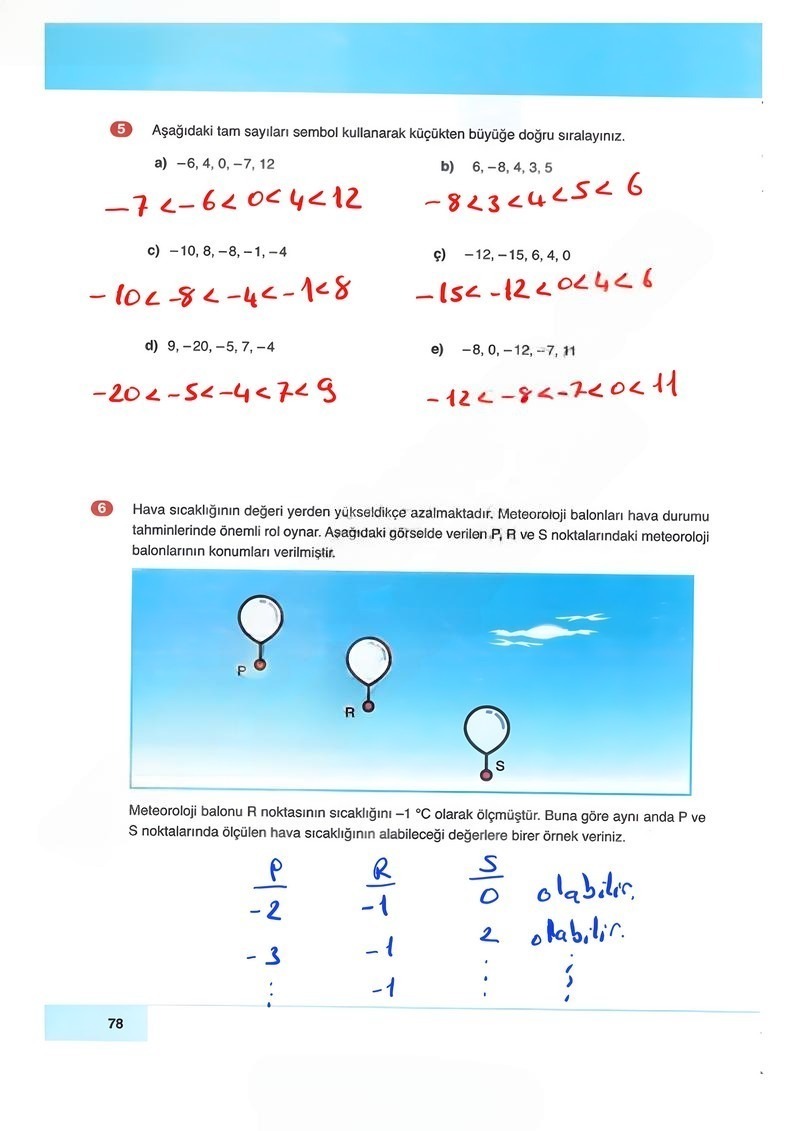 5 Aşağıdaki tam sayıları sembol kullanarak küçükten büyüğe doğru sıralayınız.
a) −6, 4, 0, −7, 12
b) 6, −8, 4, 3, 5
−7 < −6 < 0 < 4 < 12
−8 < 3 < 4 < 5 < 6
c) −10, 8, −8, −1, −4
ç) −12, −15, 6, 4, 0
−10 < −8 < −4 < −1 < 8
−15 < −12 < 0 < 4 < 6
d) 9, −20, −5, 7, −4
e) −8, 0, −12, −7, 11
−20 < −5 < −4 < 7 < 9
−12 < −8 < −7 < 0 < 11
6 Hava sıcaklığının değeri yerden yükseldikçe azalmaktadır. Meteoroloji balonları hava durumu
tahminlerinde önemli rol oynar. Aşağıdaki görselde verilen P, R ve S noktalarındaki meteoroloji
balonlarının konumları verilmiştir.
P
R
S
Meteoroloji balonu R noktasının sıcaklığını −1 °C olarak ölçmüştür. Buna göre aynı anda P ve
S noktalarında ölçülen hava sıcaklığının alabileceği değerlere birer örnek veriniz.
P R S
−2 −1 0 olabilir.
−3 −1 2 olabilir.
⋮ −1 ⋮ ⋮
78